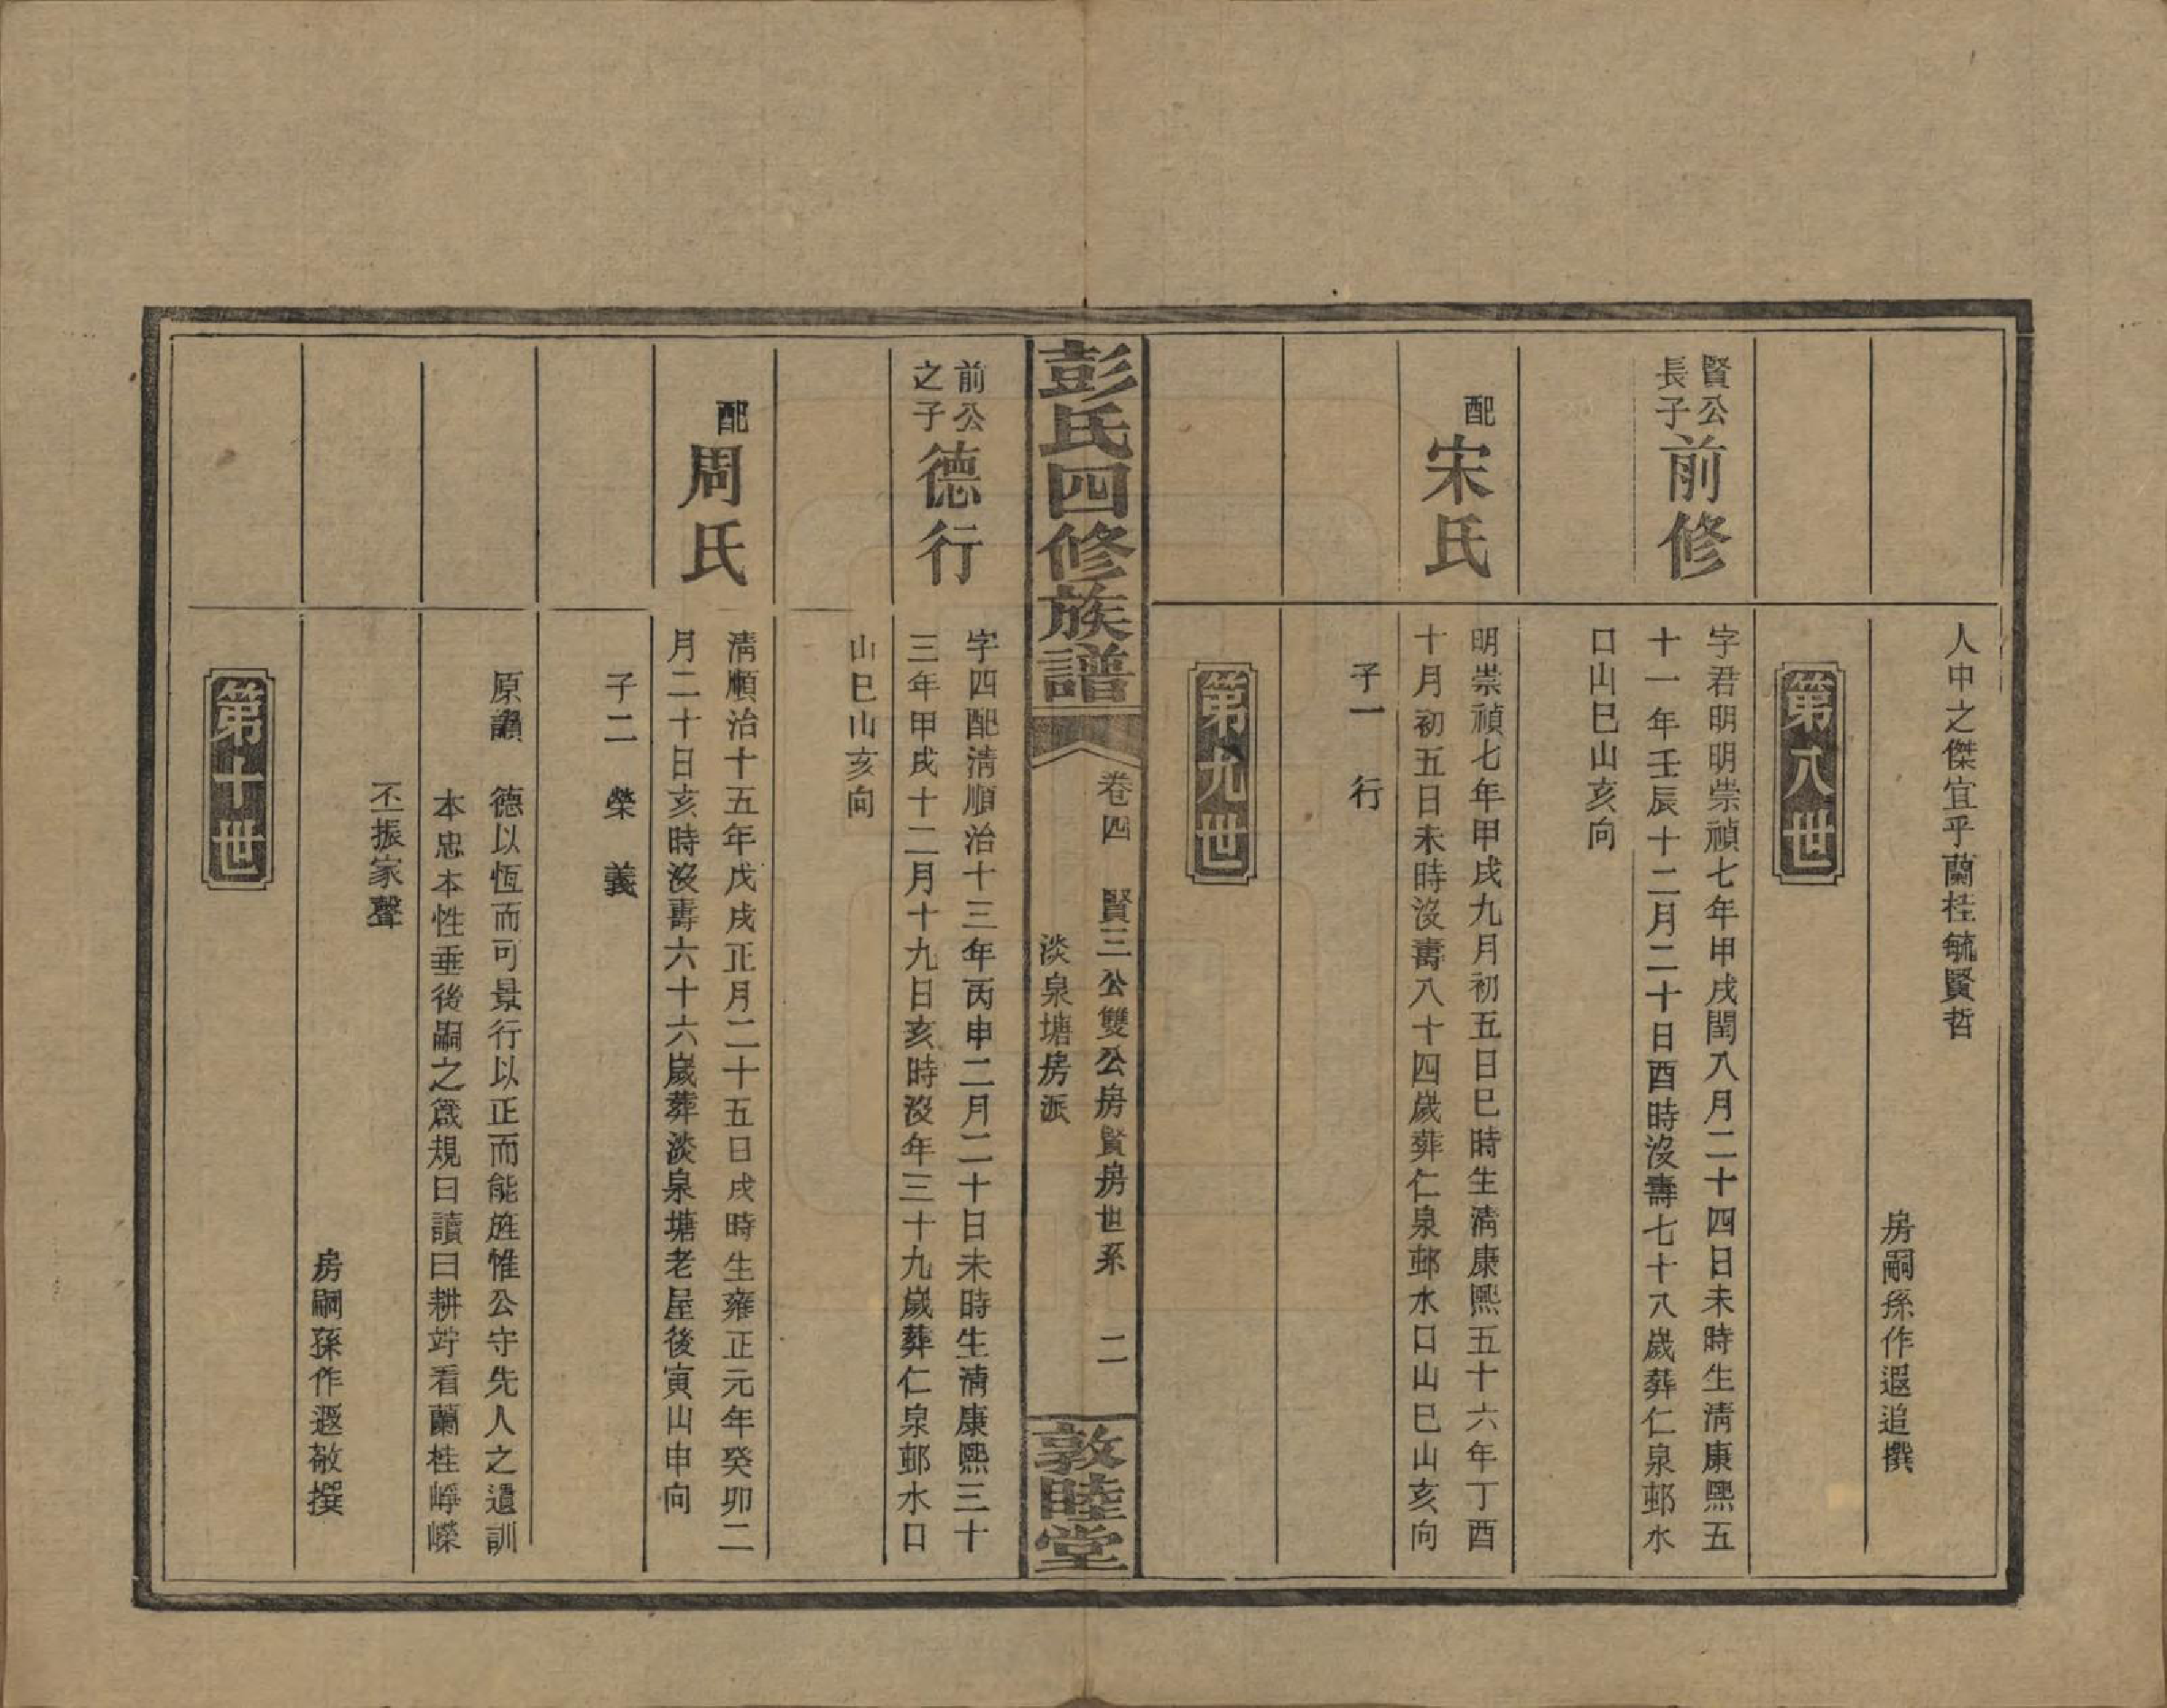 人中之傑宜乎蘭桂毓賢哲
房嗣孫作遐追撰
第八世
賢公
長子
前修
字君明明崇禎七年甲戌閏八月二十四日未時生淸康熙五
十一年壬辰十二月二十日酉時沒壽七十八歲葬仁泉邨水
口山巳山亥向
配
宋氏
明崇禎七年甲戌九月初五日巳時生淸康熙五十六年丁酉
十月初五日未時沒壽八十四歲葬仁泉邨水口山巳山亥向
子一　行
第九世
彭氏四修族譜
卷四　賢三公雙公房賢房世系　二
淡泉塘房派
敦睦堂
前公
之子
德行
字四配淸順治十三年丙申二月二十日未時生淸康熙三十
三年甲戌十二月十九日亥時沒年三十九歲葬仁泉邨水口
山巳山亥向
配
周氏
淸順治十五年戊戌正月二十五日戌時生雍正元年癸卯二
月二十日亥時沒壽六十六歲葬淡泉塘老屋後寅山申向
子二　榮　義
原韻　德以恆而可景行以正而能旌惟公守先人之遺訓
本忠本性垂後嗣之箴規曰讀曰耕竚看蘭桂崢嶸
丕振家聲
房嗣孫作遐敬撰
第十世